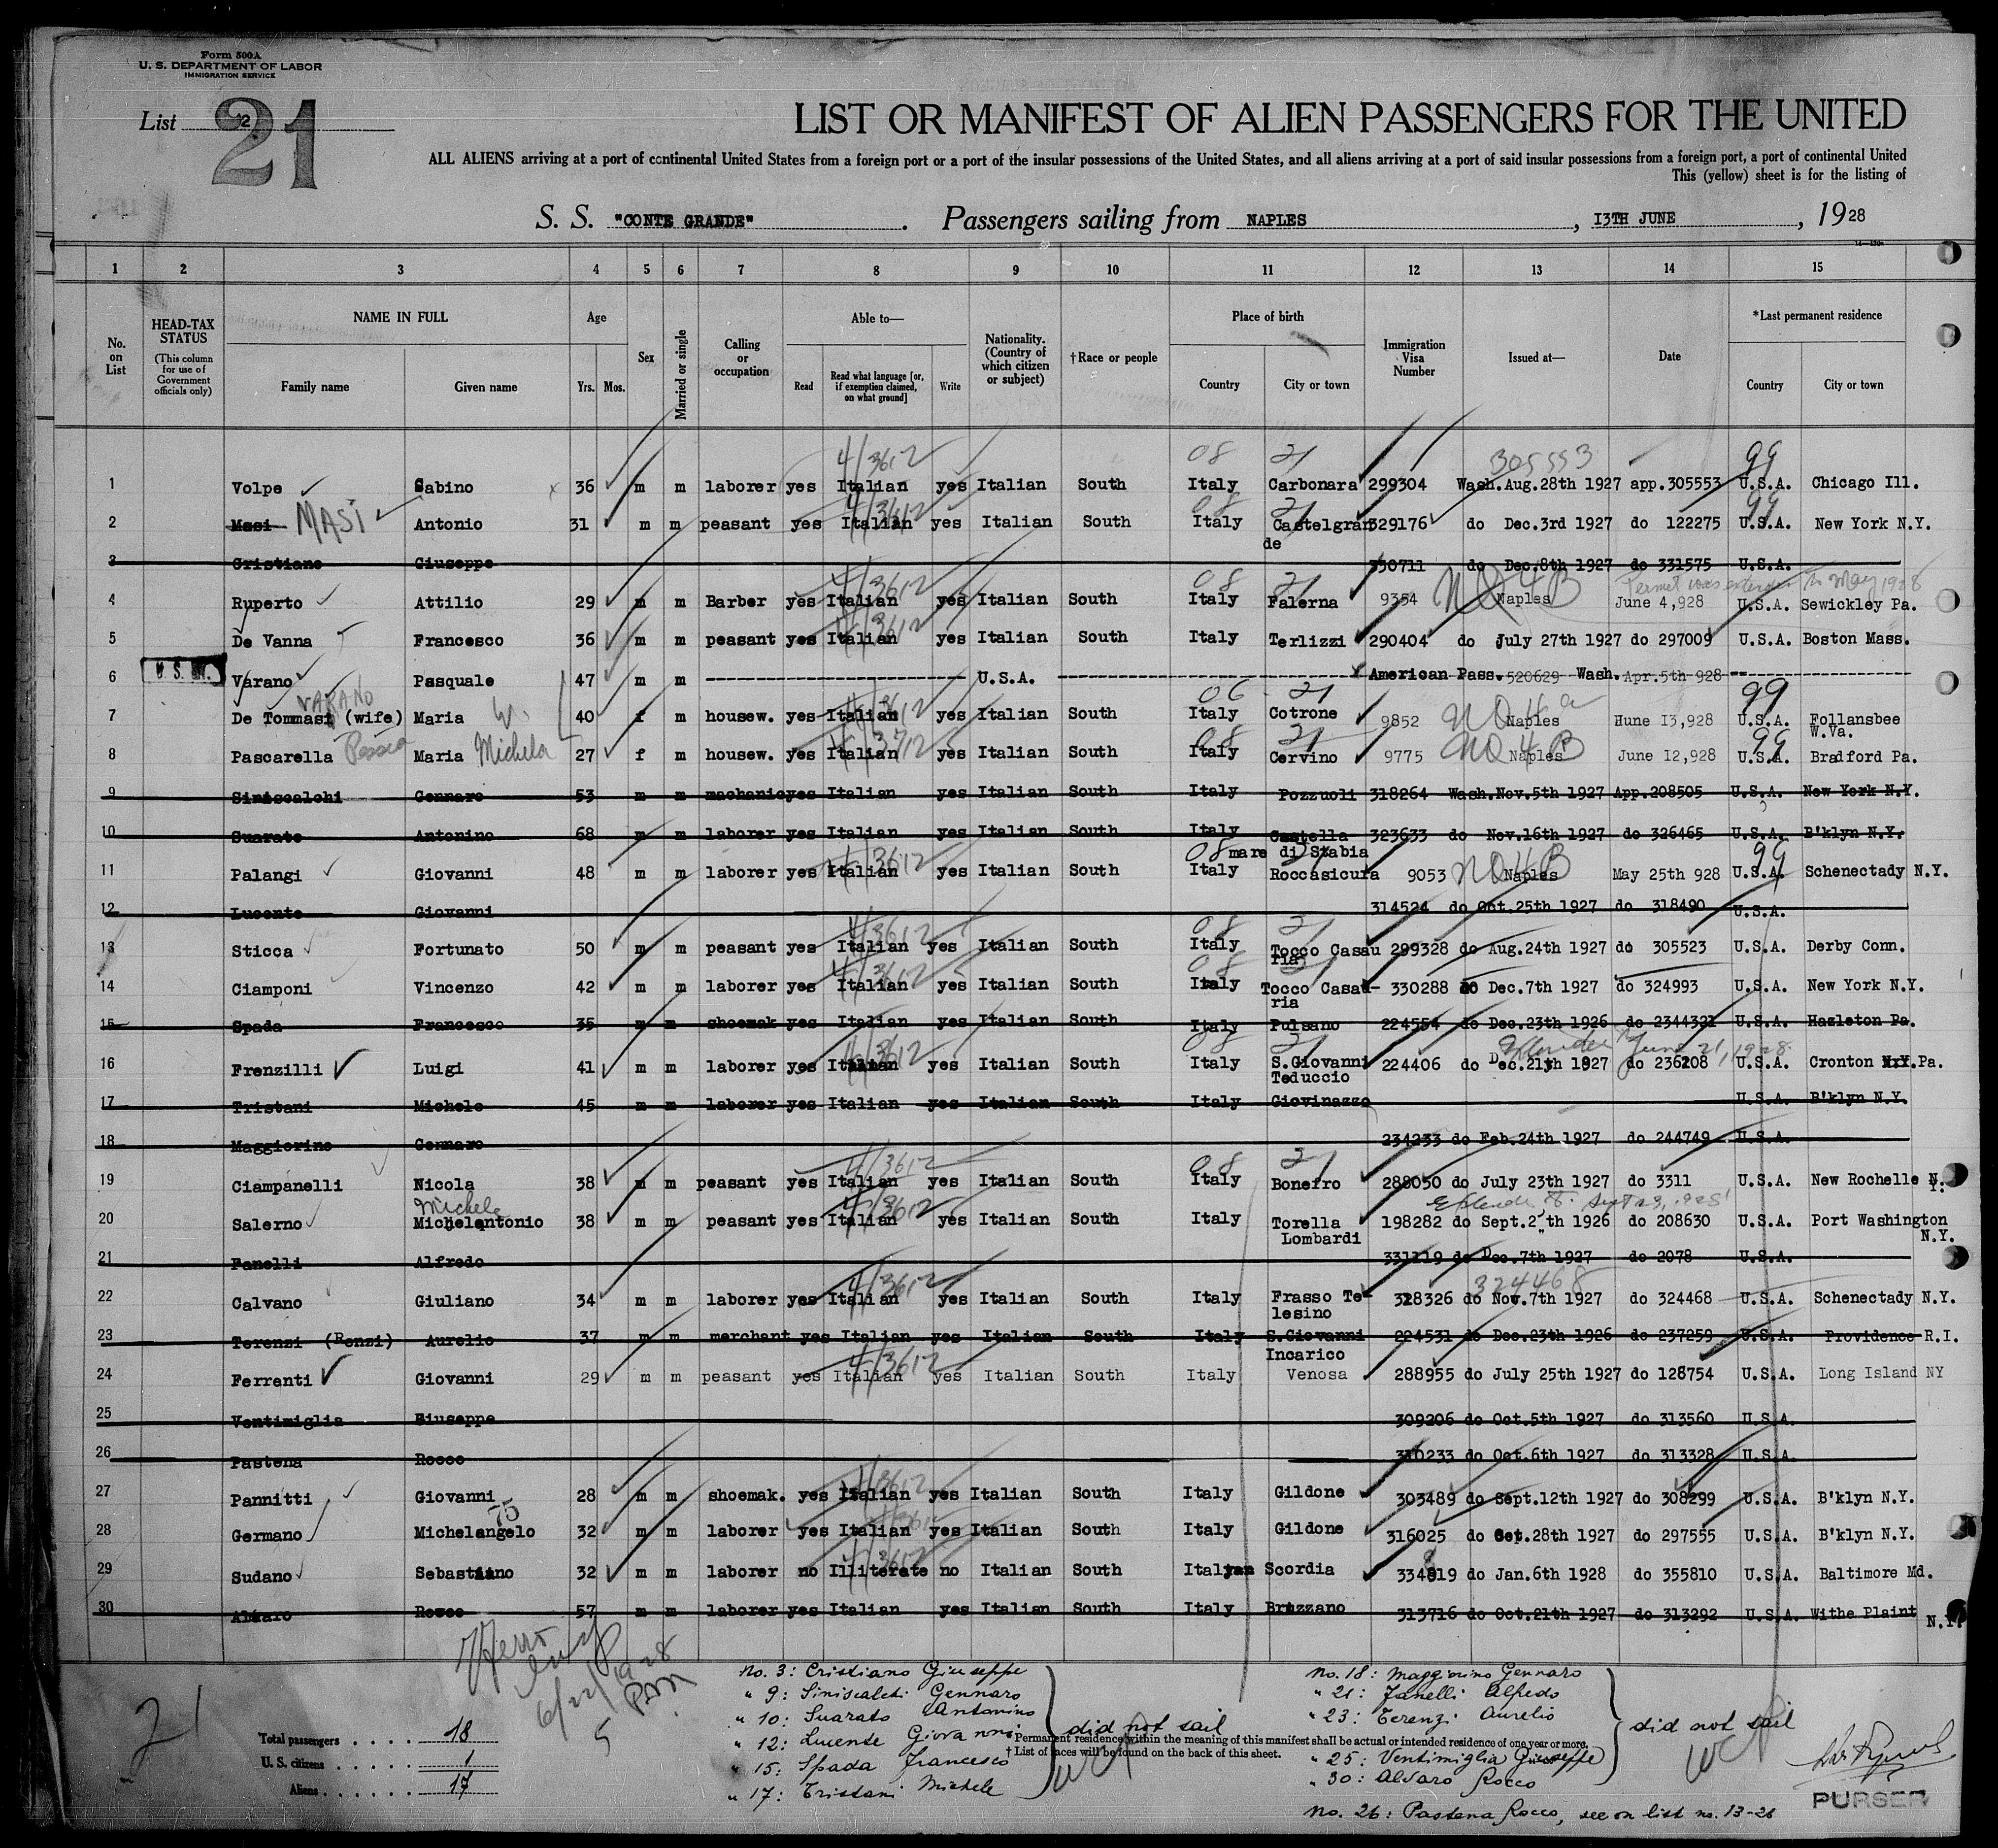 Form 500A
U. S. DEPARTMENT OF LABOR
IMMIGRATION SERVICE
List 2
21
LIST OR MANIFEST OF ALIEN PASSENGERS FOR THE UNITED
ALL ALIENS arriving at a port of continental United States from a foreign port or a port of the insular possessions of the United States, and all aliens arriving at a port of said insular possessions from a foreign port, a port of continental United
This (yellow) sheet is for the listing of
S. S. "CONTE GRANDE". Passengers sailing from NAPLES, 13TH JUNE, 1928
1 2 3 4 5 6 7 8 9 10 11 12 13 14 15
No. on List
HEAD-TAX STATUS
(This column for use of Government officials only)
NAME IN FULL
Family name Given name
Age
Yrs. Mos.
Sex
Married or single
Calling or occupation
Able to—
Read Read what language [or, if exemption claimed, on what ground] Write
Nationality. (Country of which citizen or subject)
†Race or people
Place of birth
Country City or town
Immigration Visa Number
Issued at—
Date
*Last permanent residence
Country City or town
4/3612 08 21 305553 99
1 Volpe Sabino 36 m m laborer yes Italian yes Italian South Italy Carbonara 299304 Wash. Aug.28th 1927 app.305553 U.S.A. Chicago Ill.
4/3612 08 21 99
2 Masi MASI Antonio 31 m m peasant yes Italian yes Italian South Italy Castelgran de 329176 do Dec.3rd 1927 do 122275 U.S.A. New York N.Y.
3 Cristiano Giuseppe 330711 do Dec.8th 1927 do 331575 U.S.A.
4/3612 08 21 NQ 4 B Permit was extended to May 1928
4 Ruperto Attilio 29 m m Barber yes Italian yes Italian South Italy Falerna 9354 Naples June 4,928 U.S.A. Sewickley Pa.
4/3612
5 De Vanna Francesco 36 m m peasant yes Italian yes Italian South Italy Terlizzi 290404 do July 27th 1927 do 297009 U.S.A. Boston Mass.
6 Varano Pasquale 47 m m U.S.A. American Pass. 520629 Wash. Apr.5th 928
VARANO W. 06 21 NQ 4 a 99
7 De Tommasi (wife) Maria 40 f m housew. yes Italian yes Italian South Italy Cotrone 9852 Naples Hune 13,928 U.S.A. Follansbee W.Va.
Michela 08 21 NQ 4 B 99
8 Pascarella Maria 27 f m housew. yes Italian yes Italian South Italy Cervino 9775 Naples June 12,928 U.S.A. Bradford Pa.
9 Siniscalchi Gennaro 53 m m mechanic yes Italian yes Italian South Italy Pozzuoli 318264 Wash. Nov.5th 1927 App.208505 U.S.A. New York N.Y.
10 Suarato Antonino 68 m m laborer yes Italian yes Italian South Italy Castella mare di Stabia 323633 do Nov.16th 1927 do 326465 U.S.A. B'klyn N.Y.
4/3612 08 NQ 4 B 99
11 Palangi Giovanni 48 m m laborer yes Italian yes Italian South Italy Roccasicura 9053 Naples May 25th 928 U.S.A. Schenectady N.Y.
12 Lucente Giovanni 314524 do Oct.25th 1927 do 318490 U.S.A.
4/3612 08 21
13 Sticca Fortunato 50 m m peasant yes Italian yes Italian South Italy Tocco Casau ria 299328 do Aug.24th 1927 do 305523 U.S.A. Derby Conn.
4/3612 08 21
14 Ciamponi Vincenzo 42 m m laborer yes Italian yes Italian South Italy Tocco Casau- ria 330288 do Dec.7th 1927 do 324993 U.S.A. New York N.Y.
15 Spada Francesco 35 m m shoemak yes Italian yes Italian South Italy Pulsano 224554 do Dec.23th 1926 do 2344321 U.S.A. Hazleton Pa.
4/3612 08 21 June 21, 1928
16 Frenzilli Luigi 41 m m laborer yes Italian yes Italian South Italy S.Giovanni Teduccio 224406 do Dec.21th 1927 do 236208 U.S.A. Cronton N.Y.Pa.
17 Tristani Michele 45 m m laborer yes Italian yes Italian South Italy Giovinazzo U.S.A. B'klyn N.Y.
18 Maggiorino Gennaro 234233 do Feb.24th 1927 do 244749 U.S.A.
4/3612 08 21
19 Ciampanelli Nicola 38 m m peasant yes Italian yes Italian South Italy Bonefro 288050 do July 23th 1927 do 3311 U.S.A. New Rochelle N.Y.
Michele 4/3612
20 Salerno Michelantonio 38 m m peasant yes Italian yes Italian South Italy Torella Lombardi 198282 do Sept.2"th 1926 do 208630 U.S.A. Port Washington N.Y.
21 Fanelli Alfredo 331119 do Dec.7th 1927 do 2078 U.S.A.
4/3612 324468
22 Calvano Giuliano 34 m m laborer yes Italian yes Italian South Italy Frasso Te- lesino 328326 do Nov.7th 1927 do 324468 U.S.A. Schenectady N.Y.
23 Terenzi (Renzi) Aurelio 37 m m merchant yes Italian yes Italian South Italy S.Giovanni Incarico 224531 do Dec.23th 1926 do 237259 U.S.A. Providence R.I.
4/3612
24 Ferrenti Giovanni 29 m m peasant yes Italian yes Italian South Italy Venosa 288955 do July 25th 1927 do 128754 U.S.A. Long Island NY
25 Ventimiglia Giuseppe 309206 do Oct.5th 1927 do 313560 U.S.A.
26 Pastena Rocco 310233 do Oct.6th 1927 do 313328 U.S.A.
4/3612
27 Pannitti Giovanni 28 m m shoemak. yes Italian yes Italian South Italy Gildone 303489 do Sept.12th 1927 do 308299 U.S.A. B'klyn N.Y.
75
28 Germano Michelangelo 32 m m laborer yes Italian yes Italian South Italy Gildone 316025 do Oct.28th 1927 do 297555 U.S.A. B'klyn N.Y.
4/3612
29 Sudano Sebastiano 32 m m laborer no Illiterate no Italian South Italy Scordia 334819 do Jan.6th 1928 do 355810 U.S.A. Baltimore Md.
30 Alvaro Rocco 57 m m laborer yes Italian yes Italian South Italy Bruzzano 313716 do Oct.21th 1927 do 313292 U.S.A. Withe Plaint N.Y.
6/22/1928
21
Total passengers 18
U. S. citizens 1
Aliens 17
No. 3: Cristiano Giuseppe
" 9: Siniscalchi Gennaro
" 10: Suarato Antonino
" 12: Lucente Giovanni
" 15: Spada Francesco
" 17: Tristani Michele
did not sail
*Permanent residence within the meaning of this manifest shall be actual or intended residence of one year or more.
†List of races will be found on the back of this sheet.
No. 18: Maggiorino Gennaro
" 21: Fanelli Alfredo
" 23: Terenzi Aurelio
" 25: Ventimiglia Giuseppe
" 30: Alvaro Rocco
did not sail
No. 26: Pastena Rocco, see on list no. 13-26
PURSER